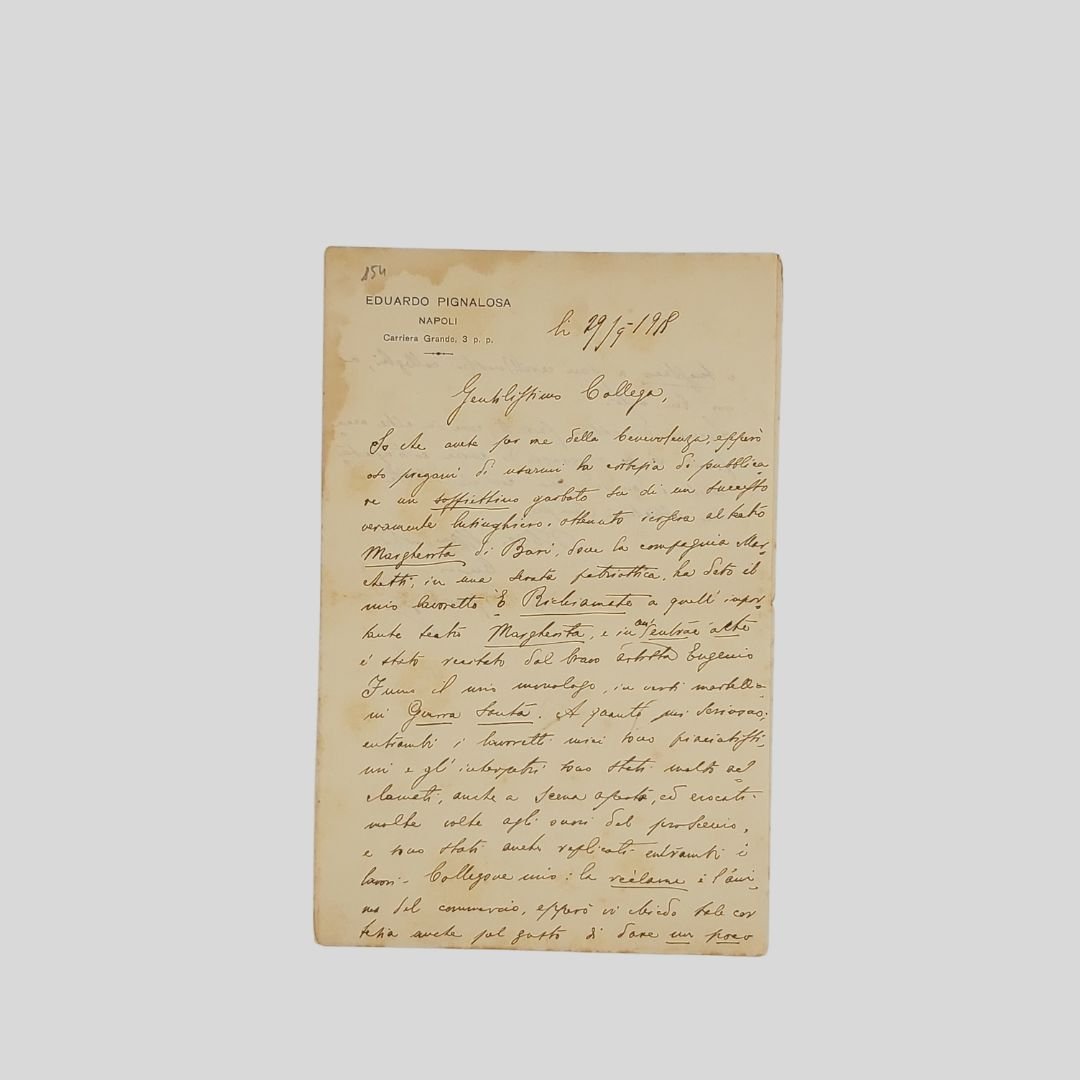 154
EDUARDO PIGNALOSA
NAPOLI
Carriera Grande, 3 p. p.
li 29/9-1918
Gentilissimo Collega,
So che avete per me della benevolenza, epperò
oso pregarvi di usarmi la cortesia di pubblica-
re un soffiettino garbato su di un successo
veramente lusinghiero, ottenuto iersera al teatro
Margherita di Bari, dove la compagnia Mar-
chetti, in una serata patriottica, ha dato il
mio lavoretto È Richiamato a quell' impor-
tante teatro Margherita, e in un' entr'acte
è stato recitato dal bravo artista Eugenio
Fumo il mio monologo, in versi martellia-
ni Guerra Santa. A quanto mi scrivono,
entrambi i lavoretti miei sono piaciutissi-
mi e gl' interpetri sono stati molto ac-
clamati, anche a scena aperta, ed evocati
molte volte agli onori del proscenio,
e sono stati anche replicati entrambi i
lavori. Collegone mio: la rèclame è l'ani-
ma del commercio, epperò vi chiedo tale cor
tesia anche pel gusto di dare un poco